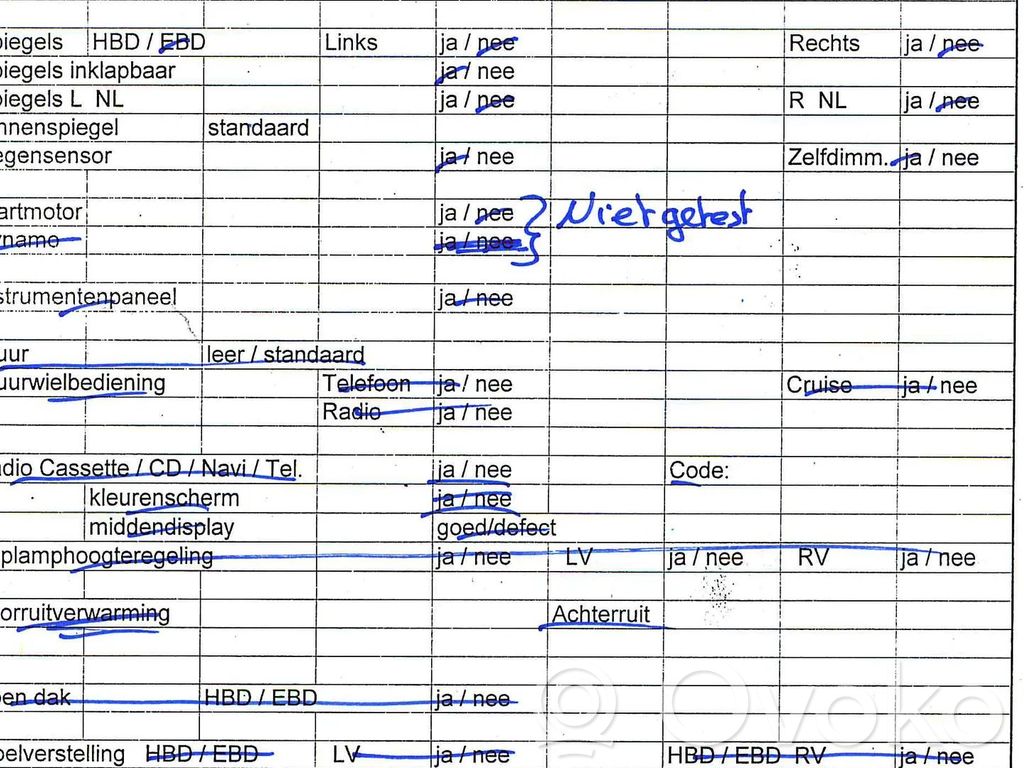 piegels HBD / EBD Links ja / nee Rechts ja / nee
piegels inklapbaar ja / nee
piegels L NL ja / nee R NL ja / nee
nnenspiegel standaard
egensensor ja / nee Zelfdimm. ja / nee
artmotor ja / nee Niet getest
ynamo ja / nee
strumentenpaneel ja / nee
uur leer / standaard
uurwielbediening Telefoon ja / nee Cruise ja / nee
Radio ja / nee
adio Cassette / CD / Navi / Tel. ja / nee Code:
kleurenscherm ja / nee
middendisplay goed/defect
plamphoogteregeling ja / nee LV ja / nee RV ja / nee
orruitverwarming Achterruit
en dak HBD / EBD ja / nee
Ovoko
elverstelling HBD / EBD LV ja / nee HBD / EBD RV ja / nee